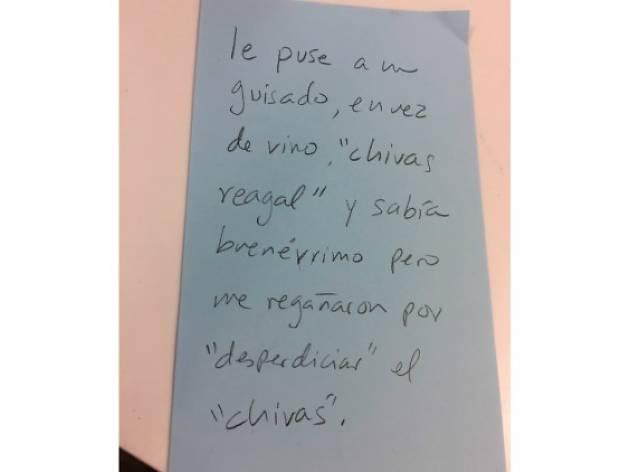 le puse a un
guisado, en vez
de vino, "chivas
reagal" y sabía
brenérrimo pero
me regañaron por
"desperdiciar" el
"chivas".